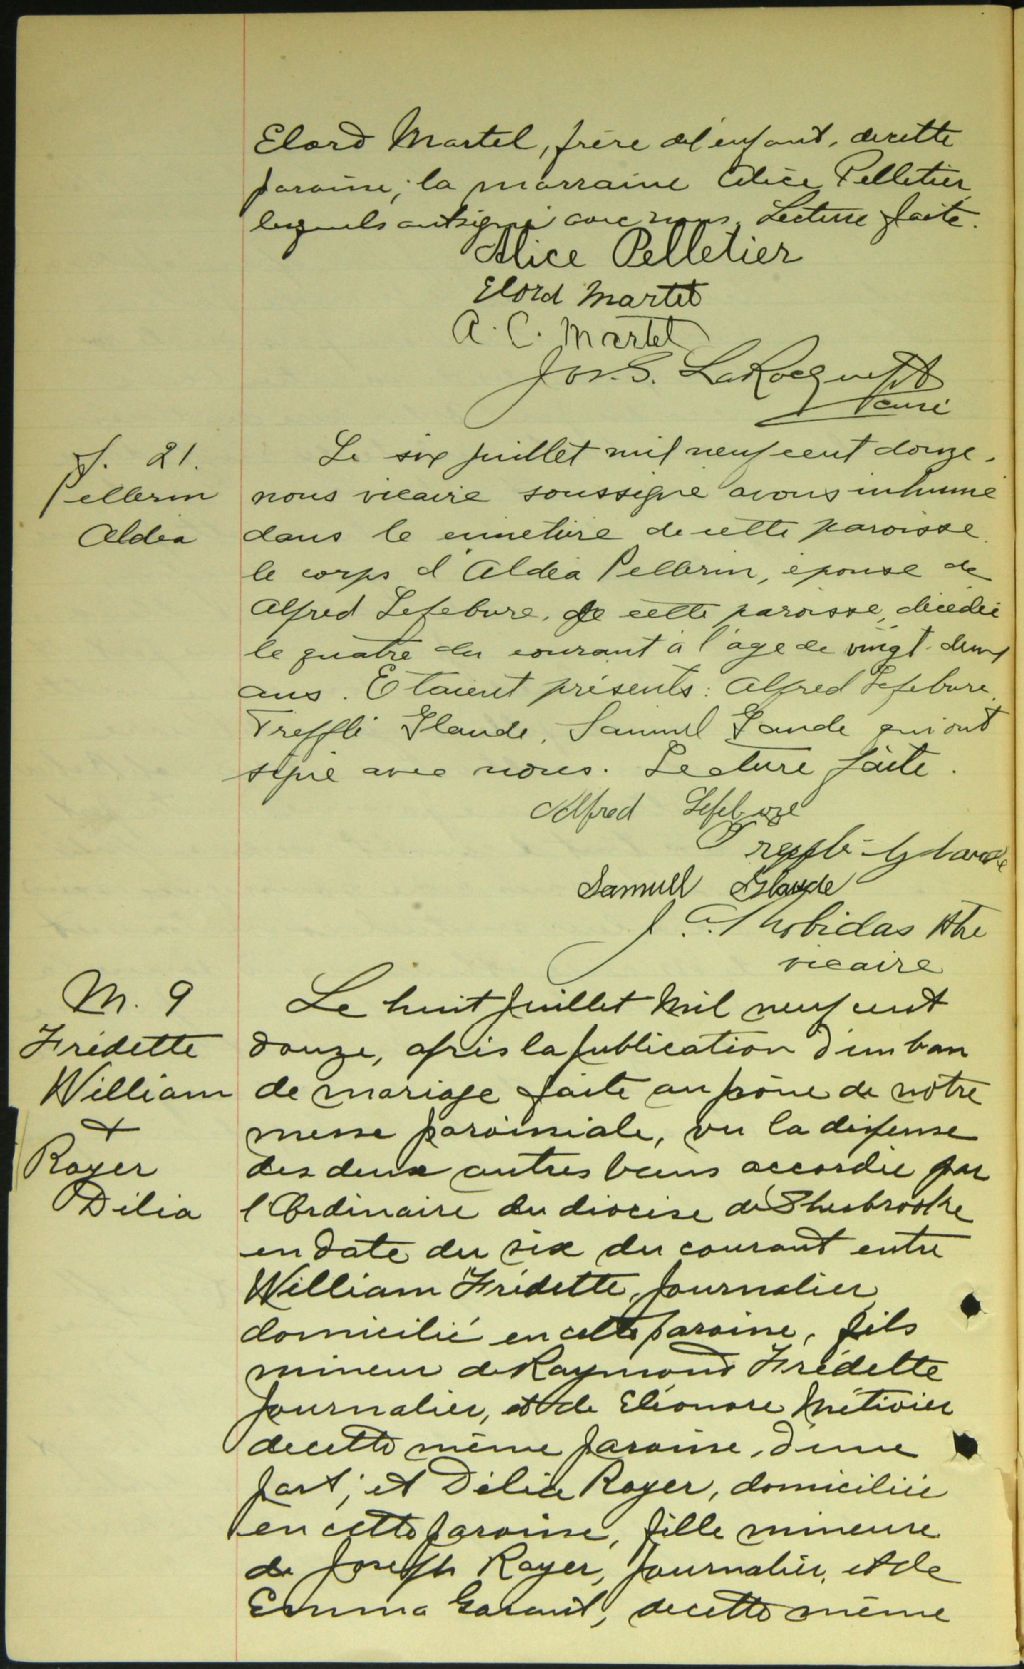 Elord Martel, frère de l'enfant, de cette
paroisse; la marraine Alice Pelletier
lesquels ont signé avec nous. Lecture faite.
Alice Pelletier
Elord Martel
A. C. Martel
Jos. S. LaRocque Ptr
curé
S. 21.
Pellerin
Aldéa
Le six juillet mil neuf cent douze,
nous vicaire soussigné avons inhumé
dans le cimetière de cette paroisse
le corps d'Aldéa Pellerin, épouse de
Alfred Lefebvre, de cette paroisse, décédée
le quatre du courant à l'âge de vingt-deux
ans. Etaient présents: Alfred Lefebvre,
Treffli Glaude, Samuel Gaude qui ont
signé avec nous. Lecture faite.
Alfred Lefebvre
Treffli Glaude
Samuel Glaude
J. A. Robidas Ptre
vicaire
M. 9
Frédette
William
+
Royer
Délia
Le huit juillet mil neuf cent
douze, après la publication d'un ban
de mariage faite au prône de notre
messe paroissiale, vu la dispense
des deux autres bans accordée par
l'Ordinaire du diocèse de Sherbrooke
en date du six du courant entre
William Frédette, journalier,
domicilié en cette paroisse, fils
mineur de Raymond Frédette
journalier, et de Eléonore Métivier
de cette même paroisse, d'une
part; et Délia Royer, domiciliée
en cette paroisse, fille mineure
de Joseph Royer, journalier, et de
Emma Garant, de cette même